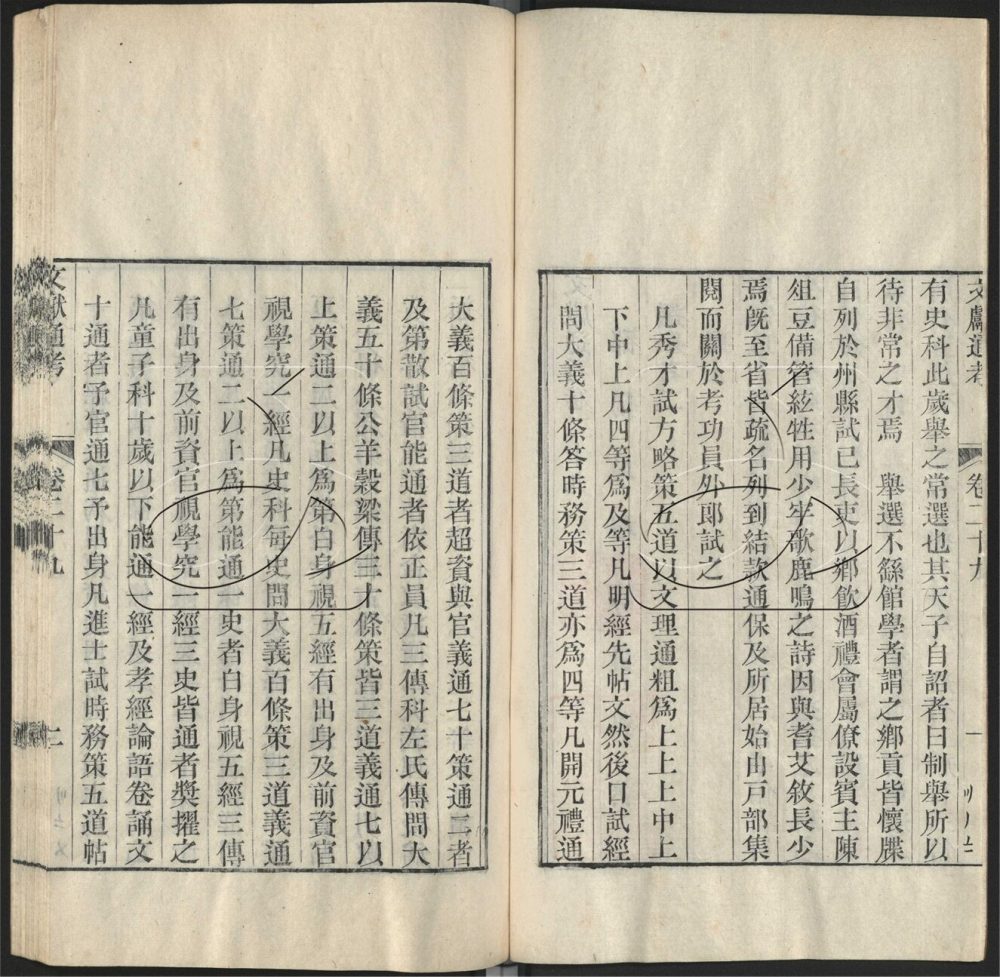 文獻通考 卷二十九 一
有史科此歲舉之常選也其天子自詔者曰制舉所以
待非常之才焉 舉選不繇館學者謂之鄉貢皆懷牒
自列於州縣試已長吏以鄉飲酒禮會屬僚設賓主陳
俎豆備管絃牲用少牢歌鹿鳴之詩因與耆艾敘長少
焉旣至省皆疏名列到結款通保及所居始由戸部集
閱而關於考功員外郎試之
凡秀才試方略策五道以文理通粗爲上上上中上
下中上凡四等爲及等凡明經先帖文然後口試經
問大義十條答時務策三道亦爲四等凡開元禮通
大義百條策三道者超資與官義通七十策通二者
及第散試官能通者依正員凡三傳科左氏傳問大
義五十條公羊穀梁傳三十條策皆三道義通七以
上策通二以上爲第白身視五經有出身及前資官
視學究一經凡史科每史問大義百條策三道義通
七策通二以上爲第能通一史者白身視五經三傳
有出身及前資官視學究一經三史皆通者奬擢之
凡童子科十歲以下能通一經及孝經論語卷誦文
十通者予官通七予出身凡進士試時務策五道帖
文獻通考 卷二十九 二